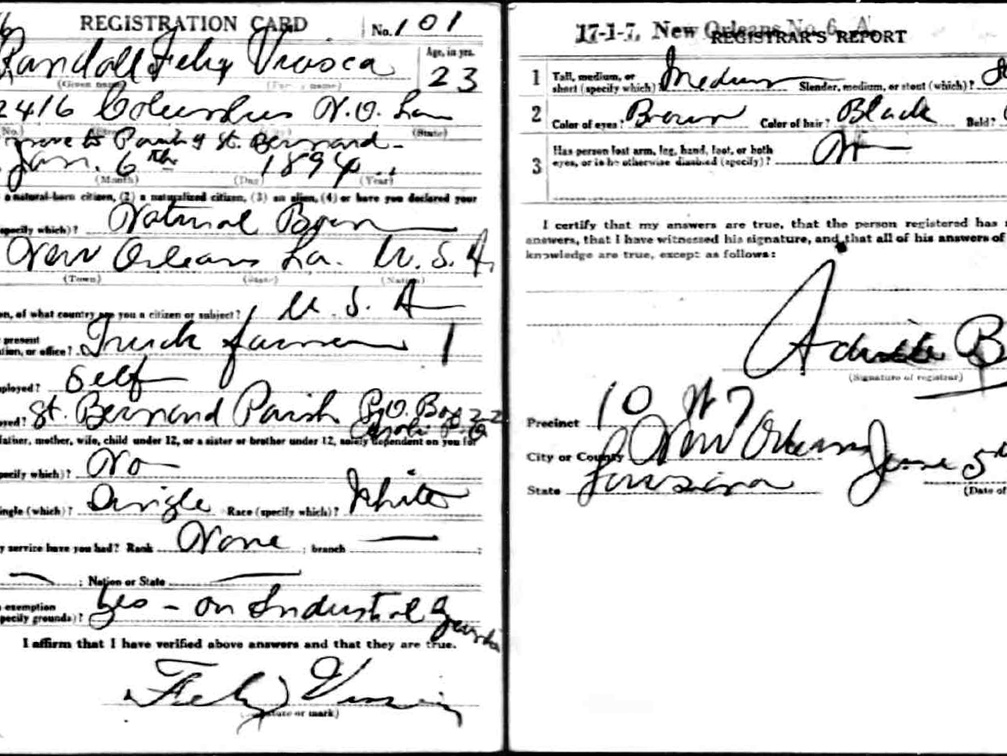 REGISTRATION CARD No. 101
Randall Felix Viosca Age, in yrs. 23
(Given name) (Family name)
2416 Columbus N.O. La
(No.) (State)
move to Parish of St. Bernard
Jan. 6th 1894
(Month) (Day) (Year)
a natural-born citizen, (2) a naturalized citizen, (3) an alien, (4) or have you declared your
specify which)? Natural Born
New Orleans La. U.S.A.
(Town) (State) (Nation)
en, of what country are you a citizen or subject? U.S.A
present
tion, or office? Truck farmer 1
ployed? Self
yed? St. Bernard Parish P.O. Box 22
father, mother, wife, child under 12, or a sister or brother under 12, solely dependent on you for
pecify which)? No
ingle (which)? Single Race (specify which)? White
y service have you had? Rank None ; branch ;
; Nation or State
exemption
pecify grounds)? Yes - on Industrial
I affirm that I have verified above answers and that they are true.
Felix Viosca
(Signature or mark)
17-1-7. New Orleans No. 6. A
REGISTRAR'S REPORT
1 Tall, medium, or short (specify which)? Medium Slender, medium, or stout (which)?
2 Color of eyes? Brown Color of hair? Black Bald?
3 Has person lost arm, leg, hand, foot, or both
eyes, or is he otherwise disabled (specify)?
I certify that my answers are true, that the person registered has
answers, that I have witnessed his signature, and that all of his answers of
knowledge are true, except as follows:
(Signature of registrar)
Precinct 10 W 7
City or County New Orleans June 5th
State Louisiana (Date of